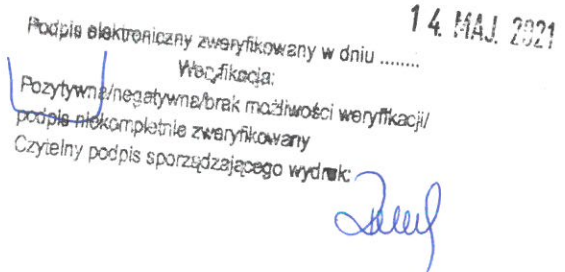 Podpis elektroniczny zweryfikowany w dniu ........ 14. MAJ. 2021
Weryfikacja:
Pozytywna/negatywna/brak możliwości weryfikacji/
podpis niekompletnie zweryfikowany
Czytelny podpis sporządzającego wydruk: